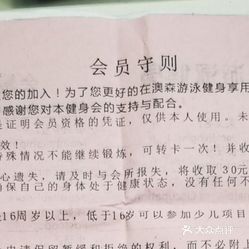 会员守则
您的加入！为了您更好的在澳森游泳健身享用
感谢您对本健身会的支持与配合。
是证明会员资格的凭证，仅供本人使用。未
效！
特殊情况不能继续锻炼，可转卡一次！并收
心遗失，请及时与会所报失，将收取30元
确保自己的身体处于健康状态，没有任何不
16周岁以上，低于16岁可以参加少儿项目
大众点评